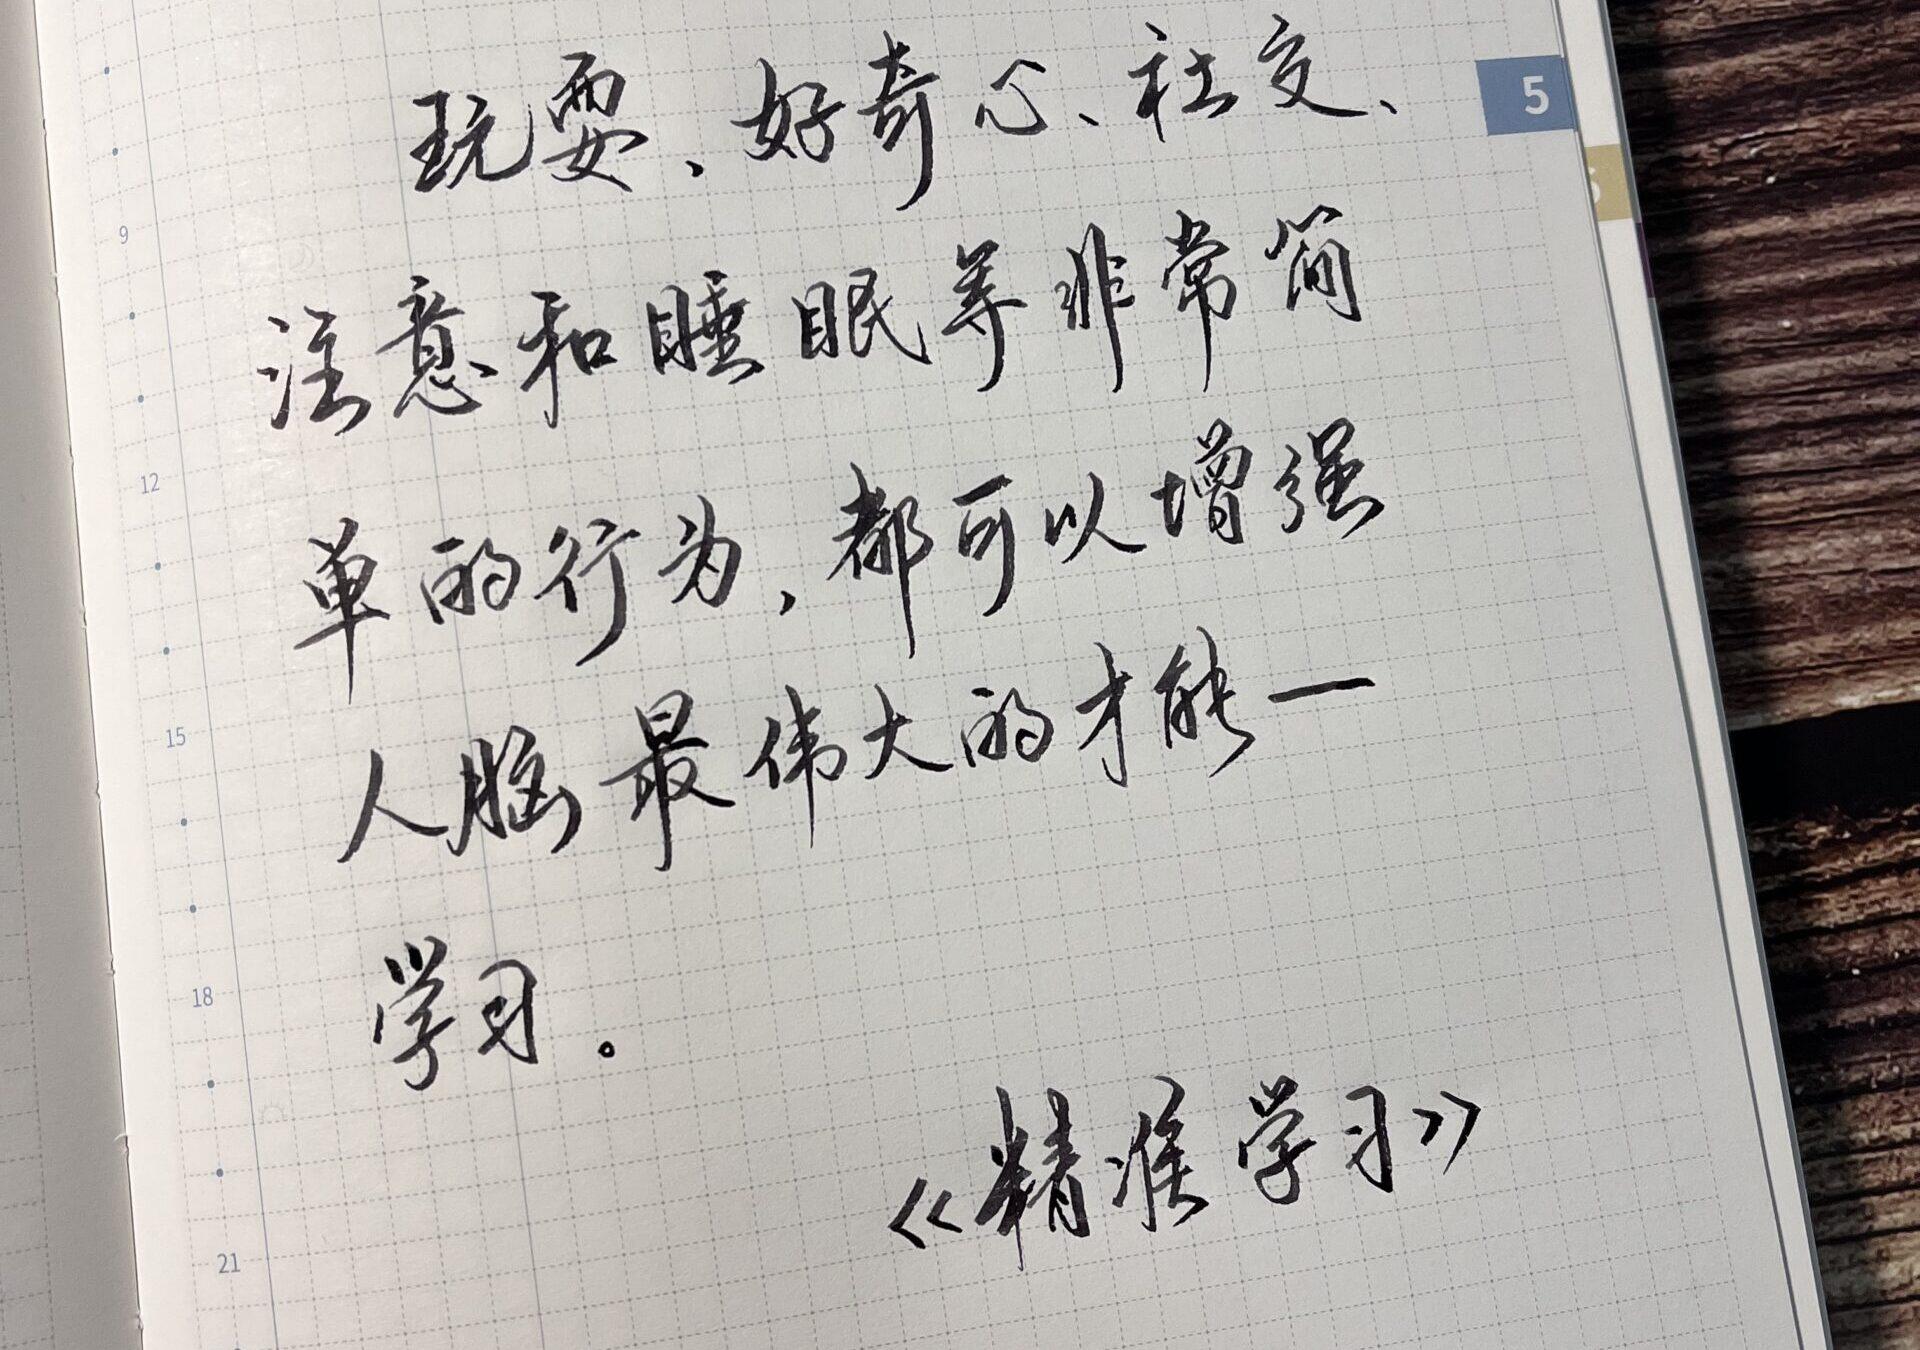 5
玩耍、好奇心、社交、
9
注意和睡眠等非常简
12
单的行为，都可以增强
15
人脑最伟大的才能一
18
学习。
《精准学习》
21